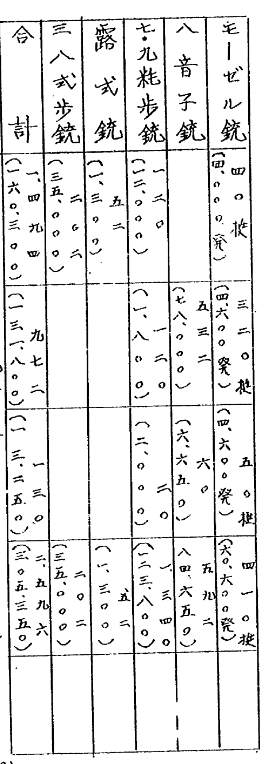 モーゼル銃
四〇挺
(四、〇〇〇発)
三二〇挺
(四、六〇〇発)
五〇挺
(四、六〇〇発)
四一〇挺
(六〇、六〇〇発)
八音子銃
五三二
(七八、〇〇〇)
六〇
(六、六五〇)
五九二
八四、六五〇)
七・九粍歩銃
一二〇
(一二、〇〇〇)
一二〇
(一、八〇〇)
二〇
(二、〇〇〇)
一、三四〇
(一二三、八〇〇)
露式銃
五二
(一、三〇〇)
五二
(一、三〇〇)
三八式歩銃
二〇二
(三五、〇〇〇)
二〇二
(三五、〇〇〇)
合計
一、四九四
(一六〇、三〇〇)
九七二
(一三一、八〇〇)
一三〇
(一三、二五〇)
二、五九六
(三〇五、三五〇)